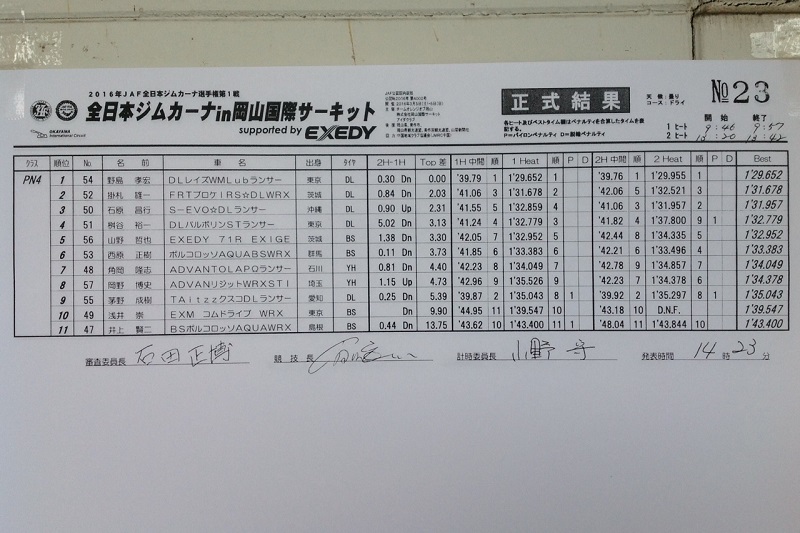 2016年JAF全日本ジムカーナ選手権第1戦
全日本ジムカーナin岡山国際サーキット
supported by EXEDY
OKAYAMA International Circuit
正式結果
天候:曇り
コース:ドライ
No 23
各ヒート及びベストタイム順はペナルティを合算したタイムを表記する。
P=パイロンペナルティ D=脱輪ペナルティ
開始 終了
1ヒート 9:46 9:57
2ヒート
クラス 順位 No. 名前 車名 出身 タイヤ 2H-1H Top差 1H中間 順 1 Heat 順 P D 2H中間 順 2 Heat 順 P D Best
PN4 1 54 野島 孝宏 DLレイズWMLubランサー 東京 DL 0.30 Dn 0.00 '39.79 1 1'29.652 1 '39.76 1 1'29.955 1 1'29.652
2 52 掛札 雄一 FRTプロケIRS☆DLWRX 茨城 DL 0.84 Dn 2.03 '41.06 3 1'31.678 2 '42.06 5 1'32.521 3 1'31.678
3 50 石原 昌行 S-EVO☆DLランサー 沖縄 DL 0.90 Up 2.31 '41.55 5 1'32.859 4 '41.06 3 1'31.957 2 1'31.957
4 51 桝谷 裕一 DLバルボリンSTランサー 東京 DL 5.02 Dn 3.13 '41.24 4 1'32.779 3 '41.82 4 1'37.800 9 1 1'32.779
5 56 山野 哲也 EXEDY 71R EXIGE 茨城 BS 1.38 Dn 3.30 '42.05 7 1'32.952 5 '42.44 8 1'34.335 5 1'32.952
6 53 西原 正樹 ボルコロッソAQUABSWRX 群馬 BS 0.11 Dn 3.73 '41.85 6 1'33.383 6 '42.21 6 1'33.496 4 1'33.383
7 48 角岡 隆志 ADVANTOLAPOランサー 石川 YH 0.81 Dn 4.40 '42.23 8 1'34.049 7 '42.78 9 1'34.857 7 1'34.049
8 57 岡野 博史 ADVANリジットWRXSTI 埼玉 YH 1.15 Up 4.73 '42.96 9 1'35.526 8 '42.23 7 1'34.378 6 1'34.378
9 55 茅野 成樹 TAitzzクスコDLランサー 愛知 DL 0.25 Dn 5.39 '39.87 2 1'35.043 8 1 '39.92 2 1'35.297 8 1 1'35.043
10 49 浅井 崇 EXM コムドライブ WRX 東京 BS Dn 9.90 '44.95 11 1'39.547 10 '43.18 10 D.N.F. 1'39.547
11 47 井上 賢二 BSボルコロッソAQUAWRX 島根 BS 0.44 Dn 13.75 '43.62 10 1'43.400 11 1 '48.04 11 1'43.844 10 1'43.400
審査委員長 石田正博 競技長 計時委員長 小野 守 発表時間 14時23分